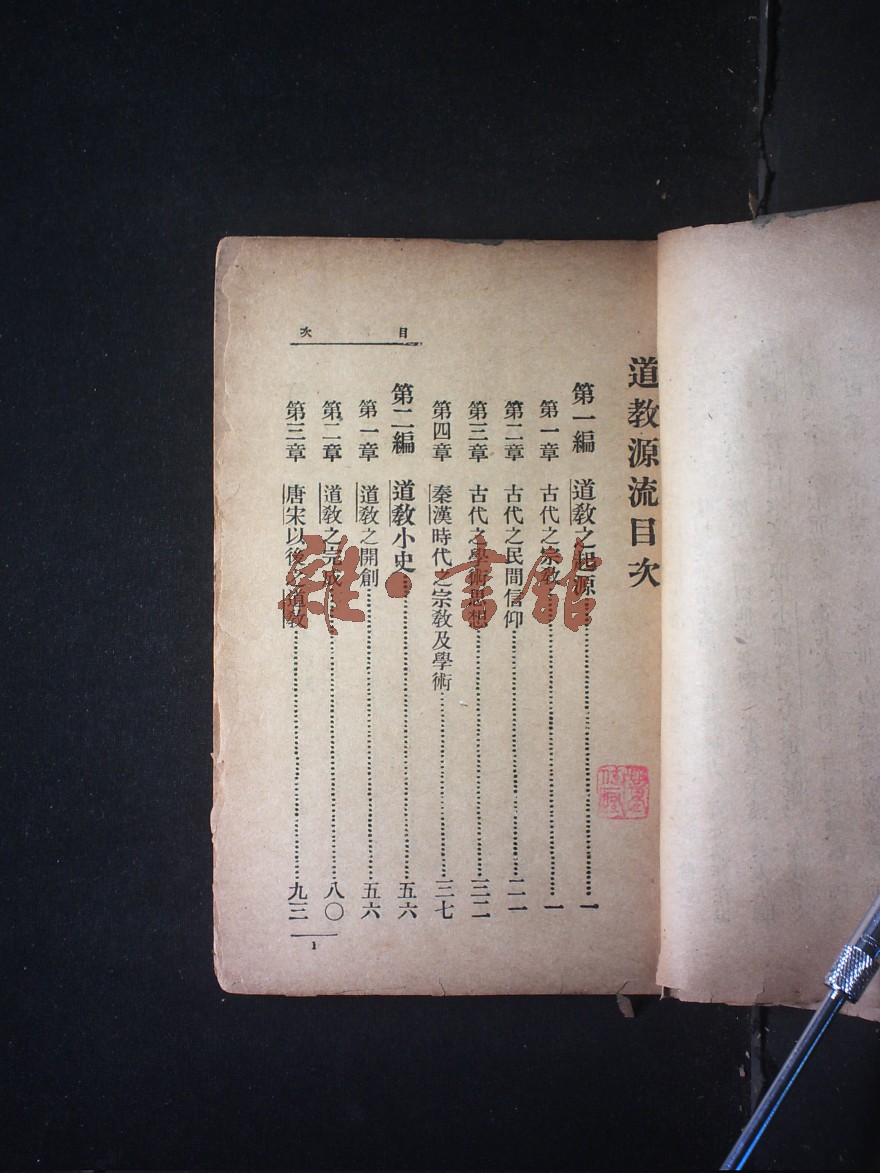 道教源流目次
第一編 道教之起源………一
第一章 古代之宗教………一
第二章 古代之民間信仰………二一
第三章 古代之學術思想………三二
第四章 秦漢時代之宗教及學術………三七
第二編 道教小史………五六
第一章 道教之開創………五六
第二章 道教之完成………八〇
第三章 唐宋以後之道教………九三
目次
1
雜·書館